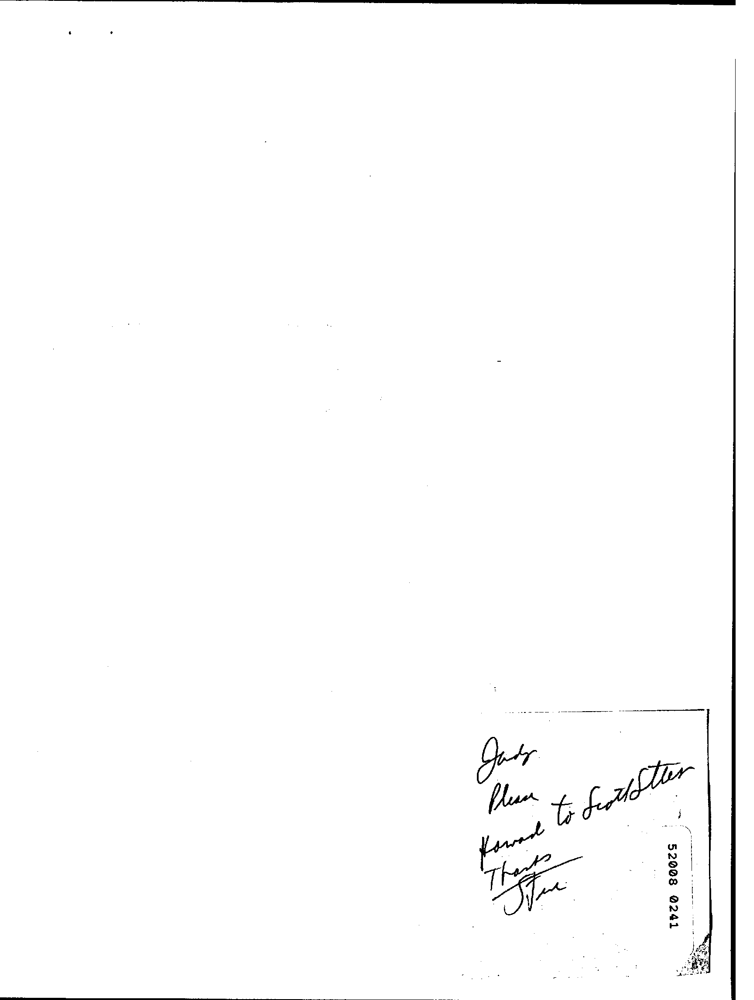 Judy
Please
Forward to Scott
Thanks
Steve
52008 0241